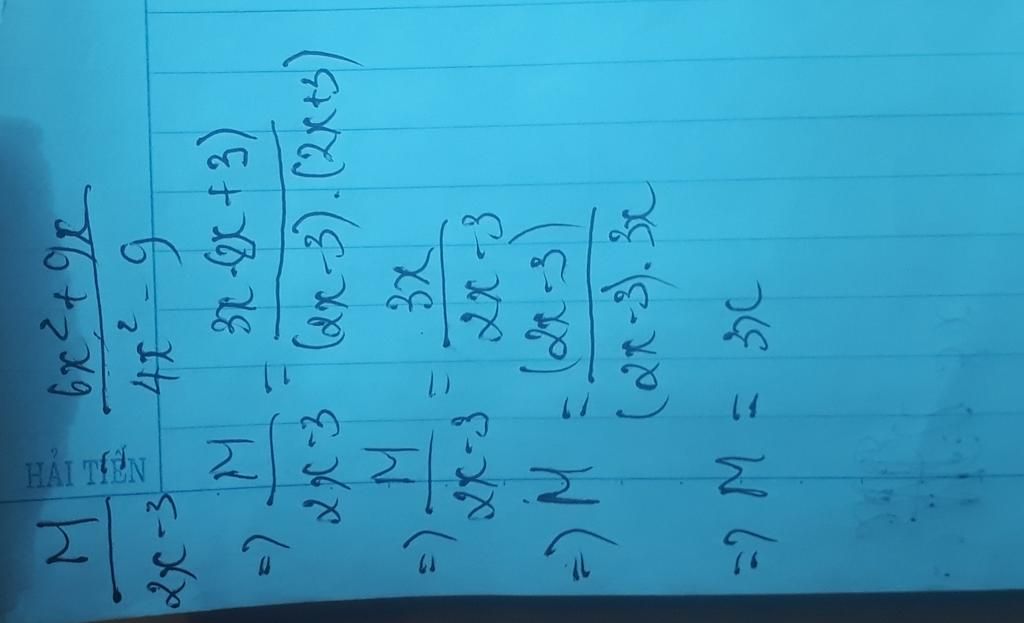 HẢI TIẾN
M/(2x-3) = (6x²+9x)/(4x²-9)
=) M/(2x-3) = 3x.(2x+3)/(2x-3).(2x+3)
=) M/(2x-3) = 3x/(2x-3)
=) M = (2x-3)/(2x-3).3x
=) M = 3x